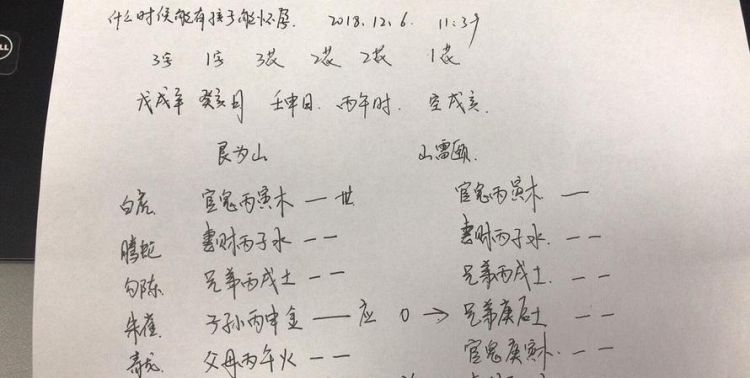 DELL
什么时候能有孩子能怀孕. 2018.12.6. 11:39
3字 1字 3花 2花 2花 1花
戊戌年 癸亥月 壬申日. 丙午时. 空戌亥.
艮为山 山雷颐.
白虎. 官鬼丙寅木 — 世 官鬼丙寅木 —
腾蛇 妻财丙子水 - - 妻财丙子水. - -
勾陈 兄弟丙戌土 - - 兄弟丙戌土. - -
朱雀. 子孙丙申金 — 应 O → 兄弟庚辰土 - -
青龙 父母丙午火 - - 官鬼庚寅木. - -